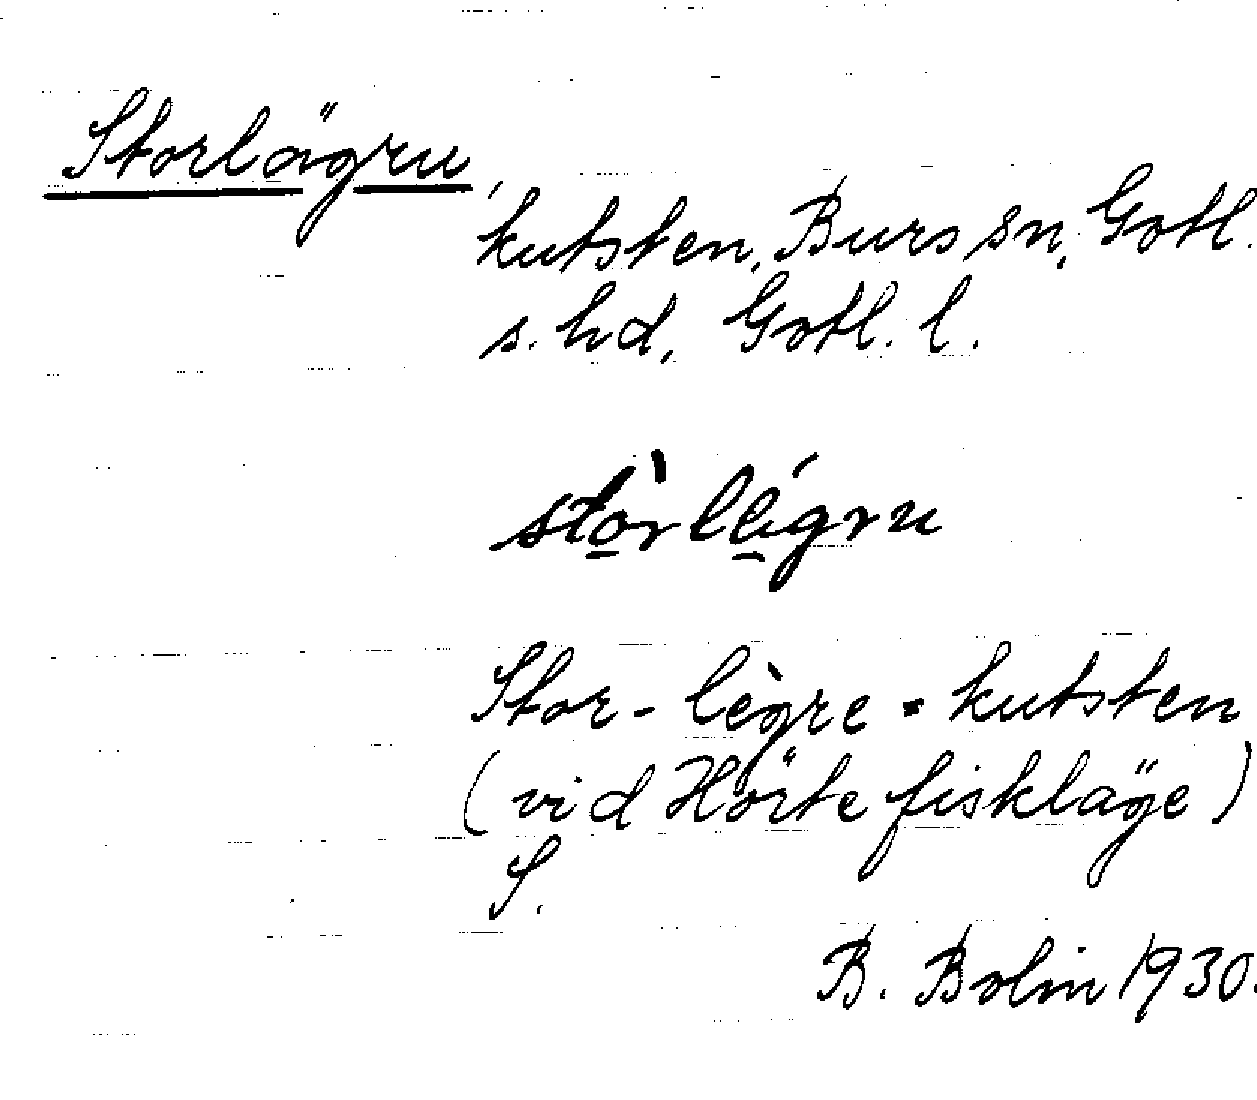 Storlägru,
kutsten, Burs sn, Gotl.
s. hd, Gotl. l.
stòrlḗgru
Stor-lègre = kutsten
(vid Hörte fiskläge)
S.
B. Bolin 1930.